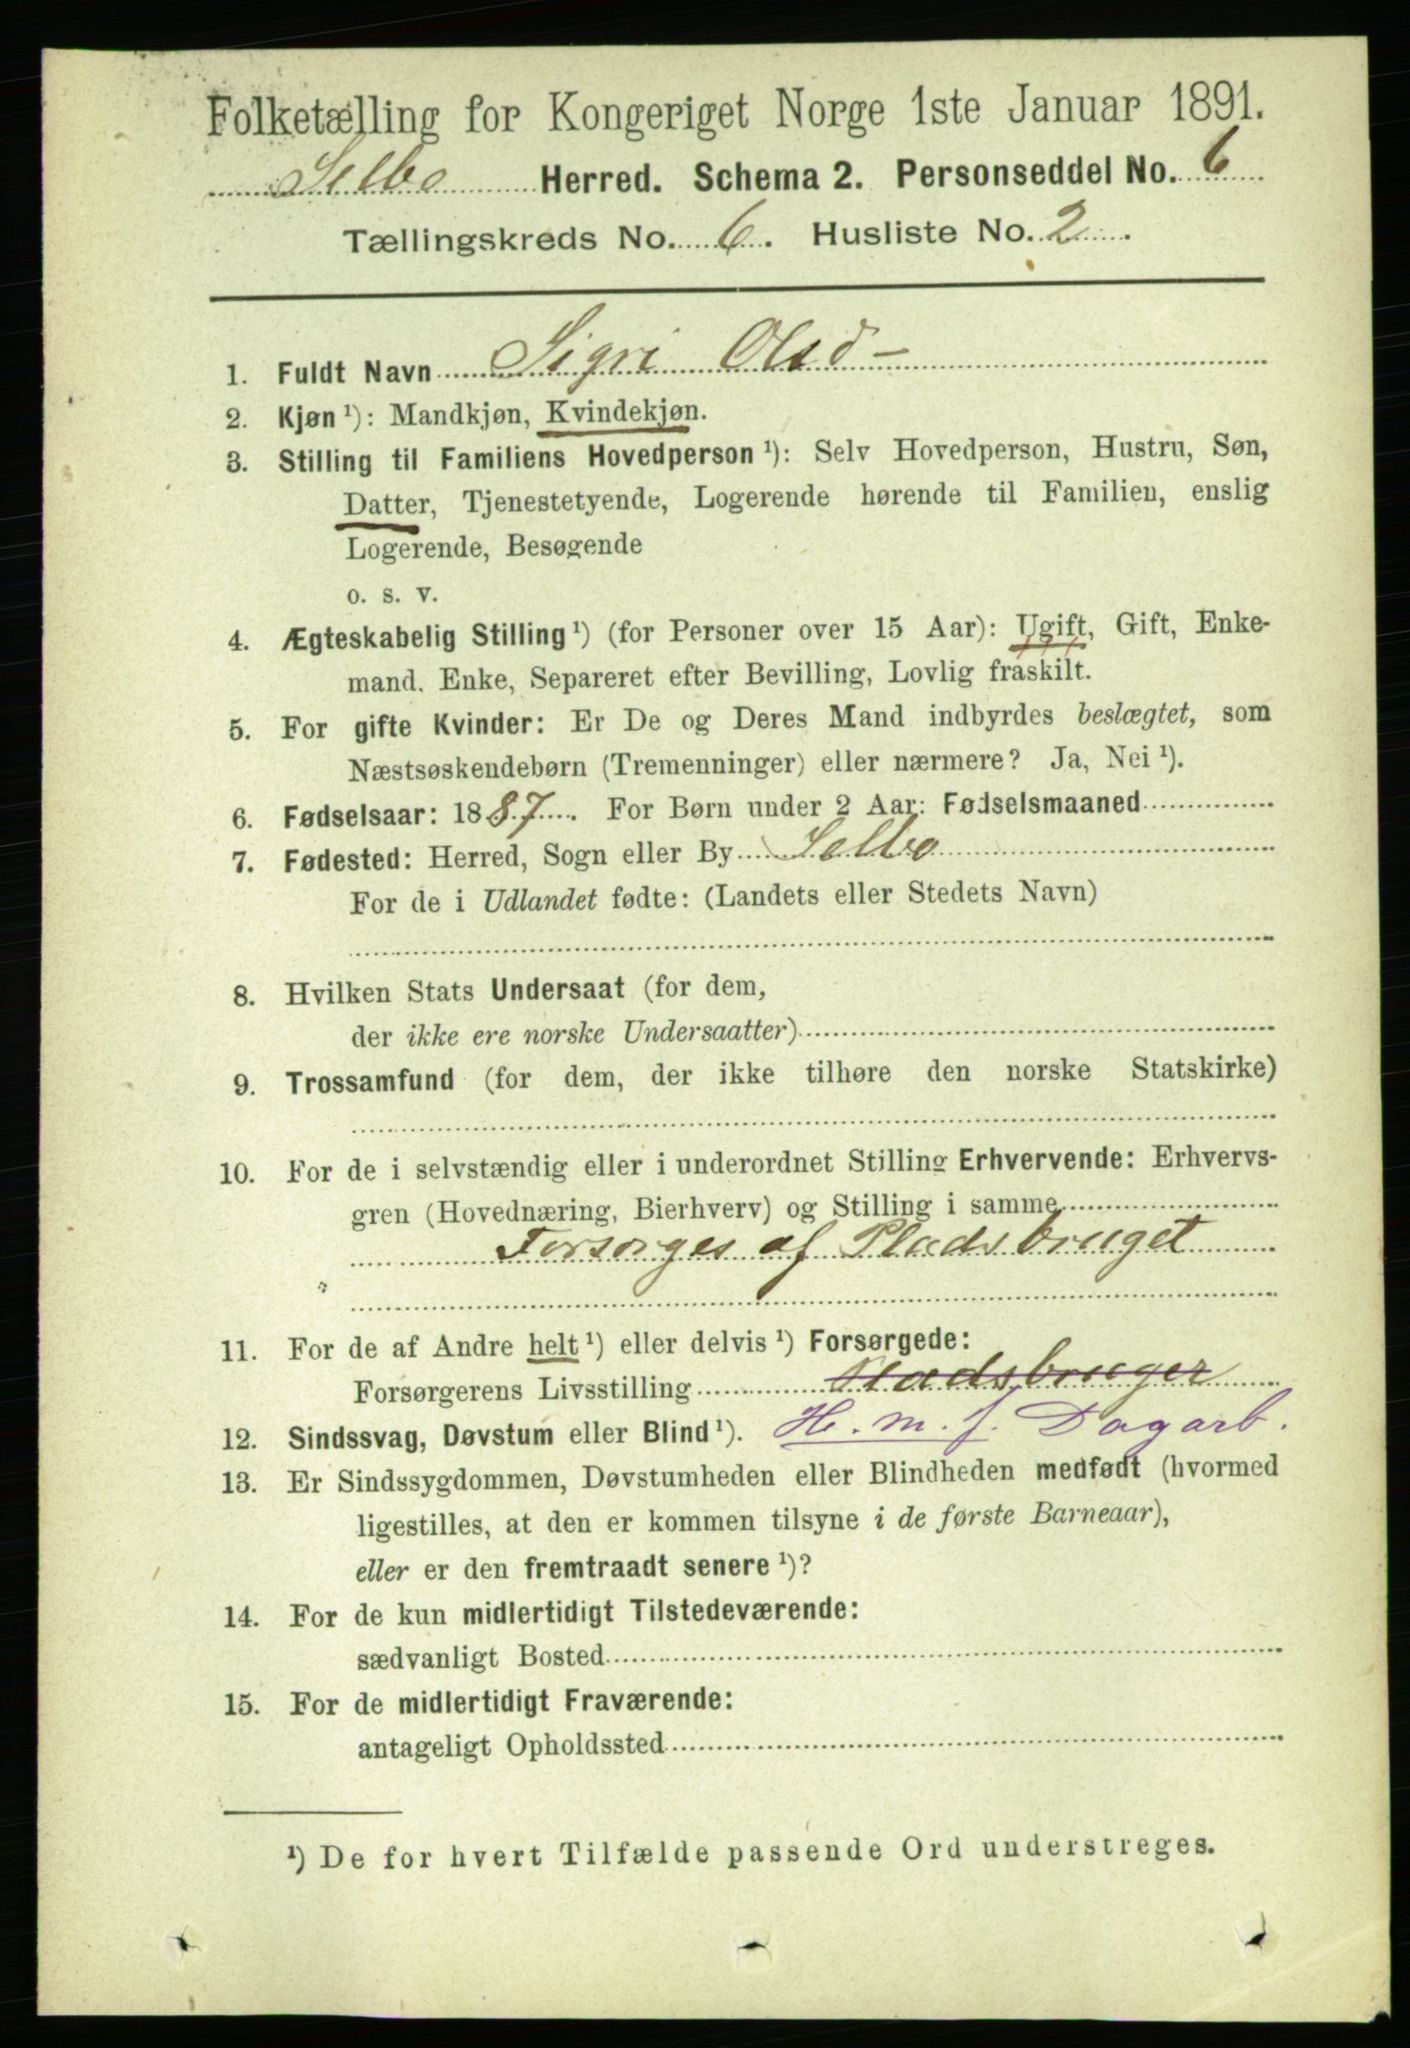 Folketælling for Kongeriget Norge 1ste Januar 1891.
Selbo Herred. Schema 2. Personseddel No. 6
Tællingskreds No. 6. Husliste No. 2.
1. Fuldt Navn Sigri Olsd-
2. Kjøn ¹): Mandkjøn, Kvindekjøn.
3. Stilling til Familiens Hovedperson ¹): Selv Hovedperson, Hustru, Søn,
Datter, Tjenestetyende, Logerende hørende til Familien, enslig
Logerende, Besøgende
o. s. v.
4. Ægteskabelig Stilling ¹) (for Personer over 15 Aar): Ugift, Gift, Enke-
mand. Enke, Separeret efter Bevilling, Lovlig fraskilt.
5. For gifte Kvinder: Er De og Deres Mand indbyrdes beslægtet, som
Næstsøskendebørn (Tremenninger) eller nærmere? Ja, Nei ¹).
6. Fødselsaar: 1887. For Børn under 2 Aar: Fødselsmaaned
7. Fødested: Herred, Sogn eller By Selbo
For de i Udlandet fødte: (Landets eller Stedets Navn)
8. Hvilken Stats Undersaat (for dem,
der ikke ere norske Undersaatter)
9. Trossamfund (for dem, der ikke tilhøre den norske Statskirke)
10. For de i selvstændig eller i underordnet Stilling Erhvervende: Erhvervs-
gren (Hovednæring, Bierhverv) og Stilling i samme
Forsørges af Pladsbruget
"
11. For de af Andre helt ¹) eller delvis ¹) Forsørgede:
Forsørgerens Livsstilling Pladsbruger
12. Sindssvag, Døvstum eller Blind ¹). H. m. J. Dagarb.
13. Er Sindssygdommen, Døvstumheden eller Blindheden medfødt (hvormed
ligestilles, at den er kommen tilsyne i de første Barneaar),
eller er den fremtraadt senere ¹)?
14. For de kun midlertidigt Tilstedeværende:
sædvanligt Bosted
15. For de midlertidigt Fraværende:
antageligt Opholdssted
¹) De for hvert Tilfælde passende Ord understreges.